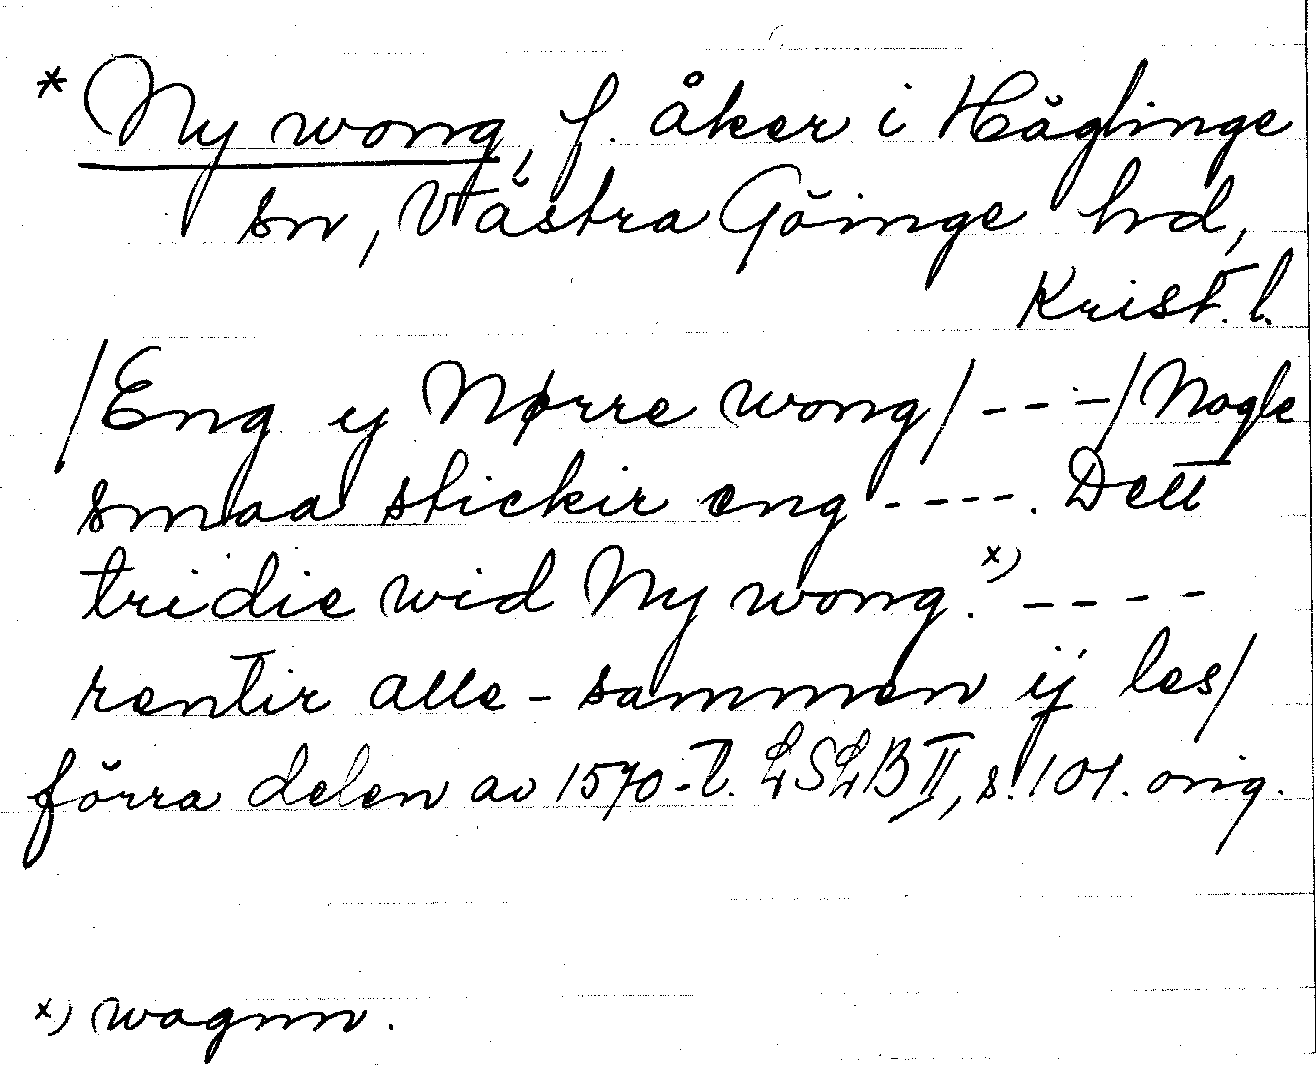 * Ny wong, f. åker i Häglinge
sn, Västra Göinge hd,
Krist. l.
/Eng y Nørre wong/ - - -/Nogle
smaa stickir eng - - - -. Dett
tridie wid Ny wong.x) - - - -
rentir alle-sammen ij les/
förra delen av 1570-t. LSLB II, s. 101. orig.
x) wognn.